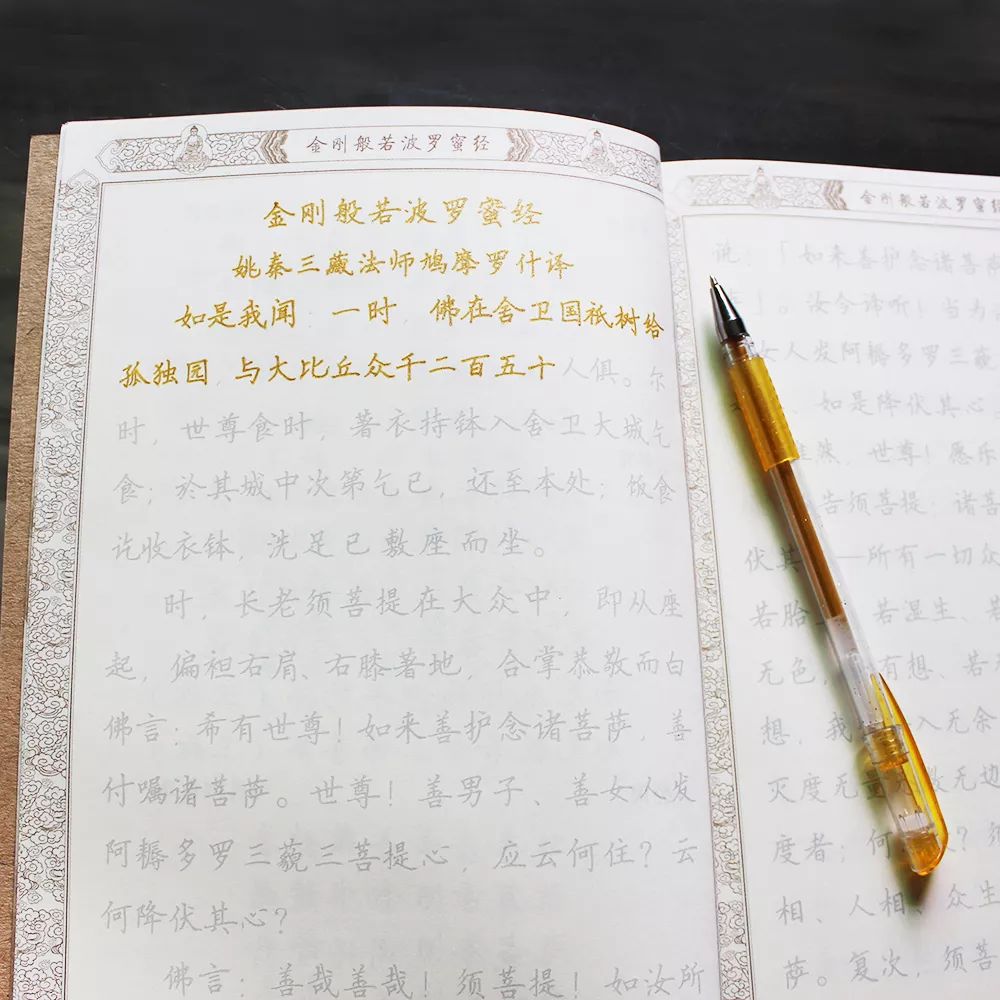 金刚般若波罗蜜经
金刚般若波罗蜜经
姚秦三藏法师鸠摩罗什译
如是我闻 一时 佛在舍卫国祇树给
孤独园 与大比丘众千二百五十人俱。尔
时，世尊食时，著衣持钵入舍卫大城乞
食；於其城中次第乞已，还至本处；饭食
讫收衣钵，洗足已敷座而坐。
时，长老须菩提在大众中，即从座
起，偏袒右肩、右膝著地，合掌恭敬而白
佛言：希有世尊！如来善护念诸菩萨，善
付嘱诸菩萨。世尊！善男子、善女人发
阿耨多罗三藐三菩提心，应云何住？云
何降伏其心？
佛言：善哉善哉！须菩提！如汝所
金刚般若波罗蜜经
说：「如来善护念诸菩萨
」。汝今谛听！当为
女人发阿耨多罗三藐
、如是降伏其心
然，世尊！愿乐
告须菩提：诸菩
伏其 所有一切众
若胎 若湿生、若
无色， 有想、若
想，我 入无余
灭度 无 无边
度者；何 ？须
相、人相、众生
萨。复次，须菩